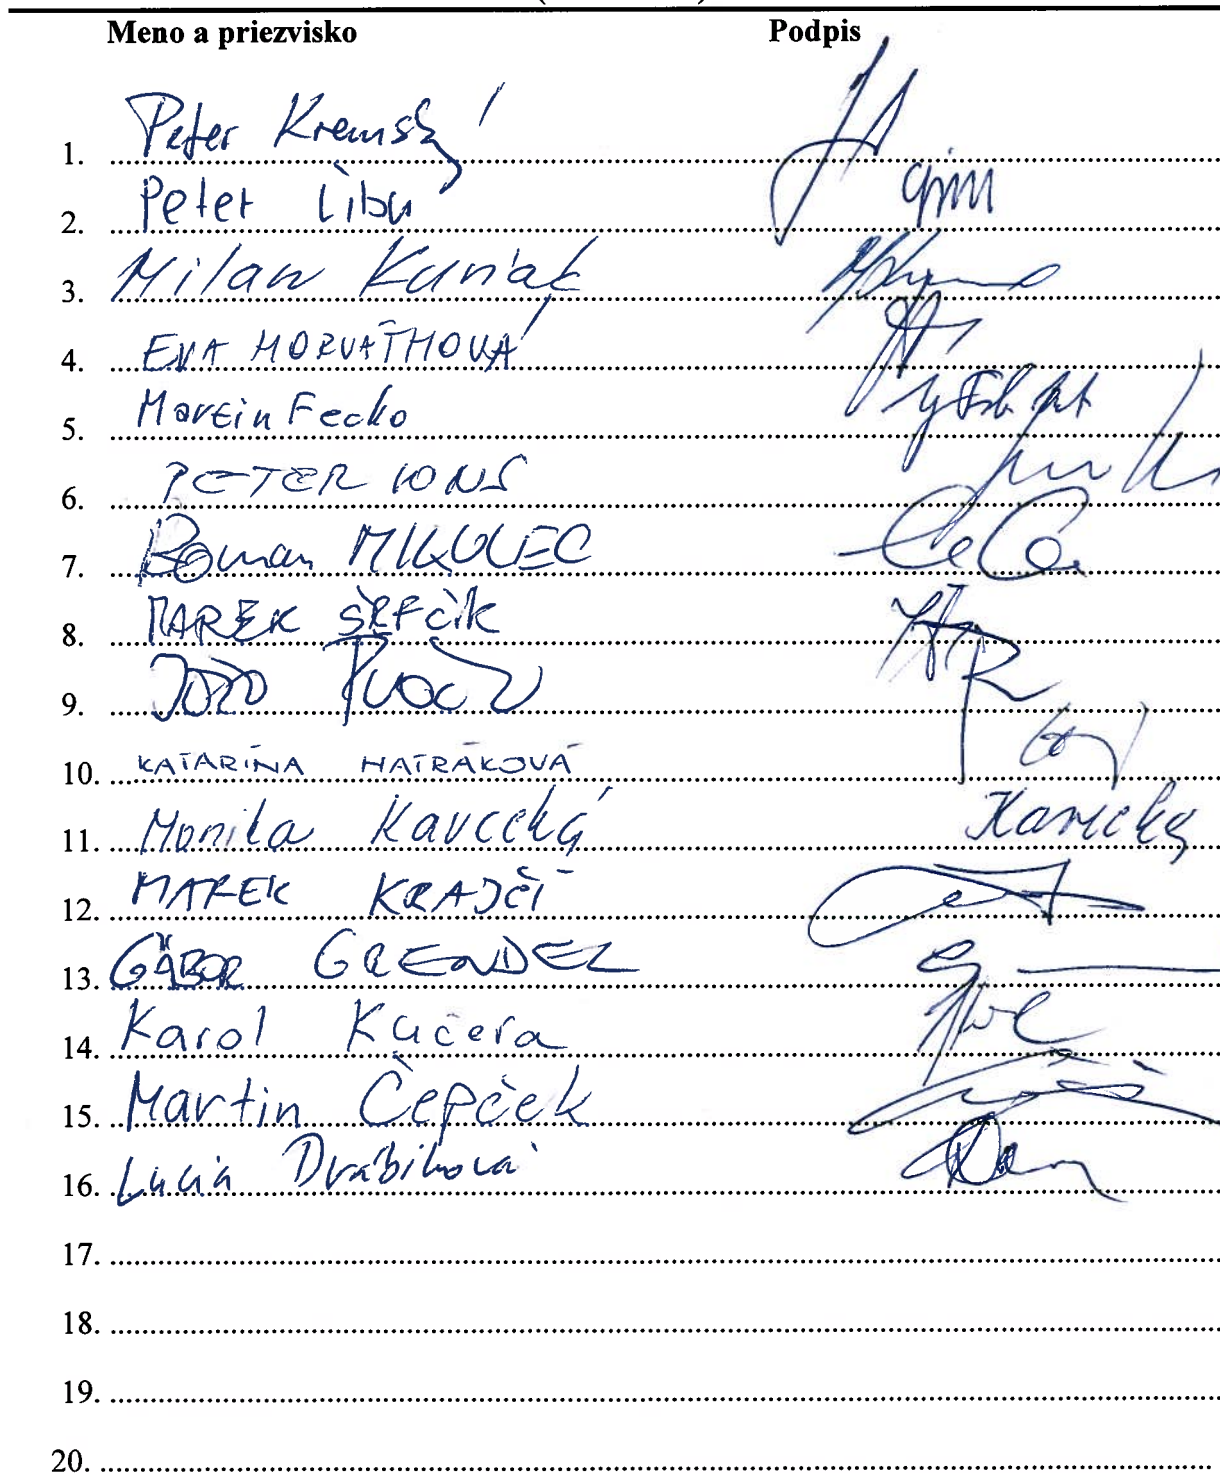 Meno a priezvisko Podpis
1. Peter Kremský
2. Peter Liba
3. Milan Kuriak
4. EVA HORVÁTHOVÁ
5. Martin Fecko
6. PETER KONS
7. Roman MIKULEC
8. MAREK ŠEFČÍK
9. JOŽO
10. KATARÍNA HATRÁKOVÁ
11. Monika Kavecká Kavecká
12. MAREK KRAJČÍ
13. GÁBOR GRENDEL
14. Karol Kučera
15. Martin Čepček
16. Lucia Drábiková
17.
18.
19.
20.